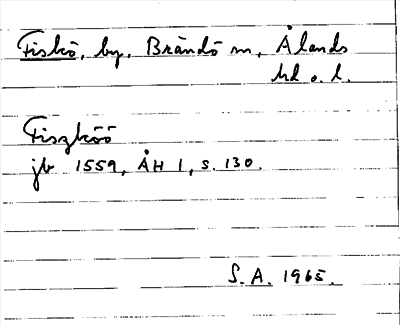 Fiskö, by, Brändö sn, Ålands
hd o. l.
Fiszköö
jb 1559, ÅH 1, s. 130.
S. A. 1965.